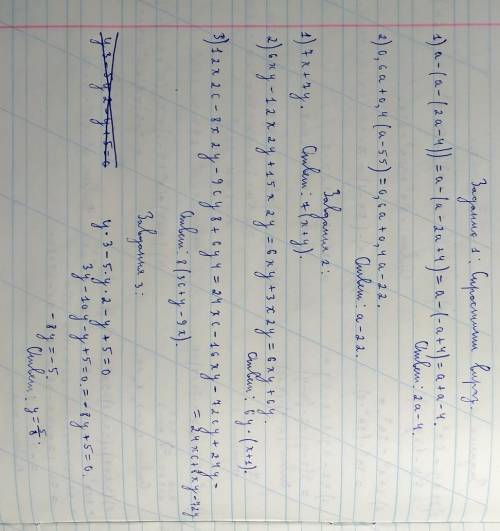 Задание 1: Спростити вираз.
1) a-(a-(2a-4))=a-(a-2a+4)=a-(-a+4)=a+a-4.
Ответ: 2a-4.
2) 0,6a+0,4(a-55)=0,6a+0,4a-22.
Ответ: a-22.
Завдання 2:
1) 7x+7y. Ответ: 7(x+y).
2) 6xy-12x2y+15x2y=6xy+3x2y=6xy+6y.
Ответ: 6y·(x+1).
3) 12x2c-8x2y-9cy8+6y4=24xc-16xy-72cy+24y=
=24xc+8xy-72y
Завдання 3:
y·3-5·y·2-y+5=0
3y-10y-y+5=0.=-8y+5=0.
-8y=-5.
Ответ: y=5/8.